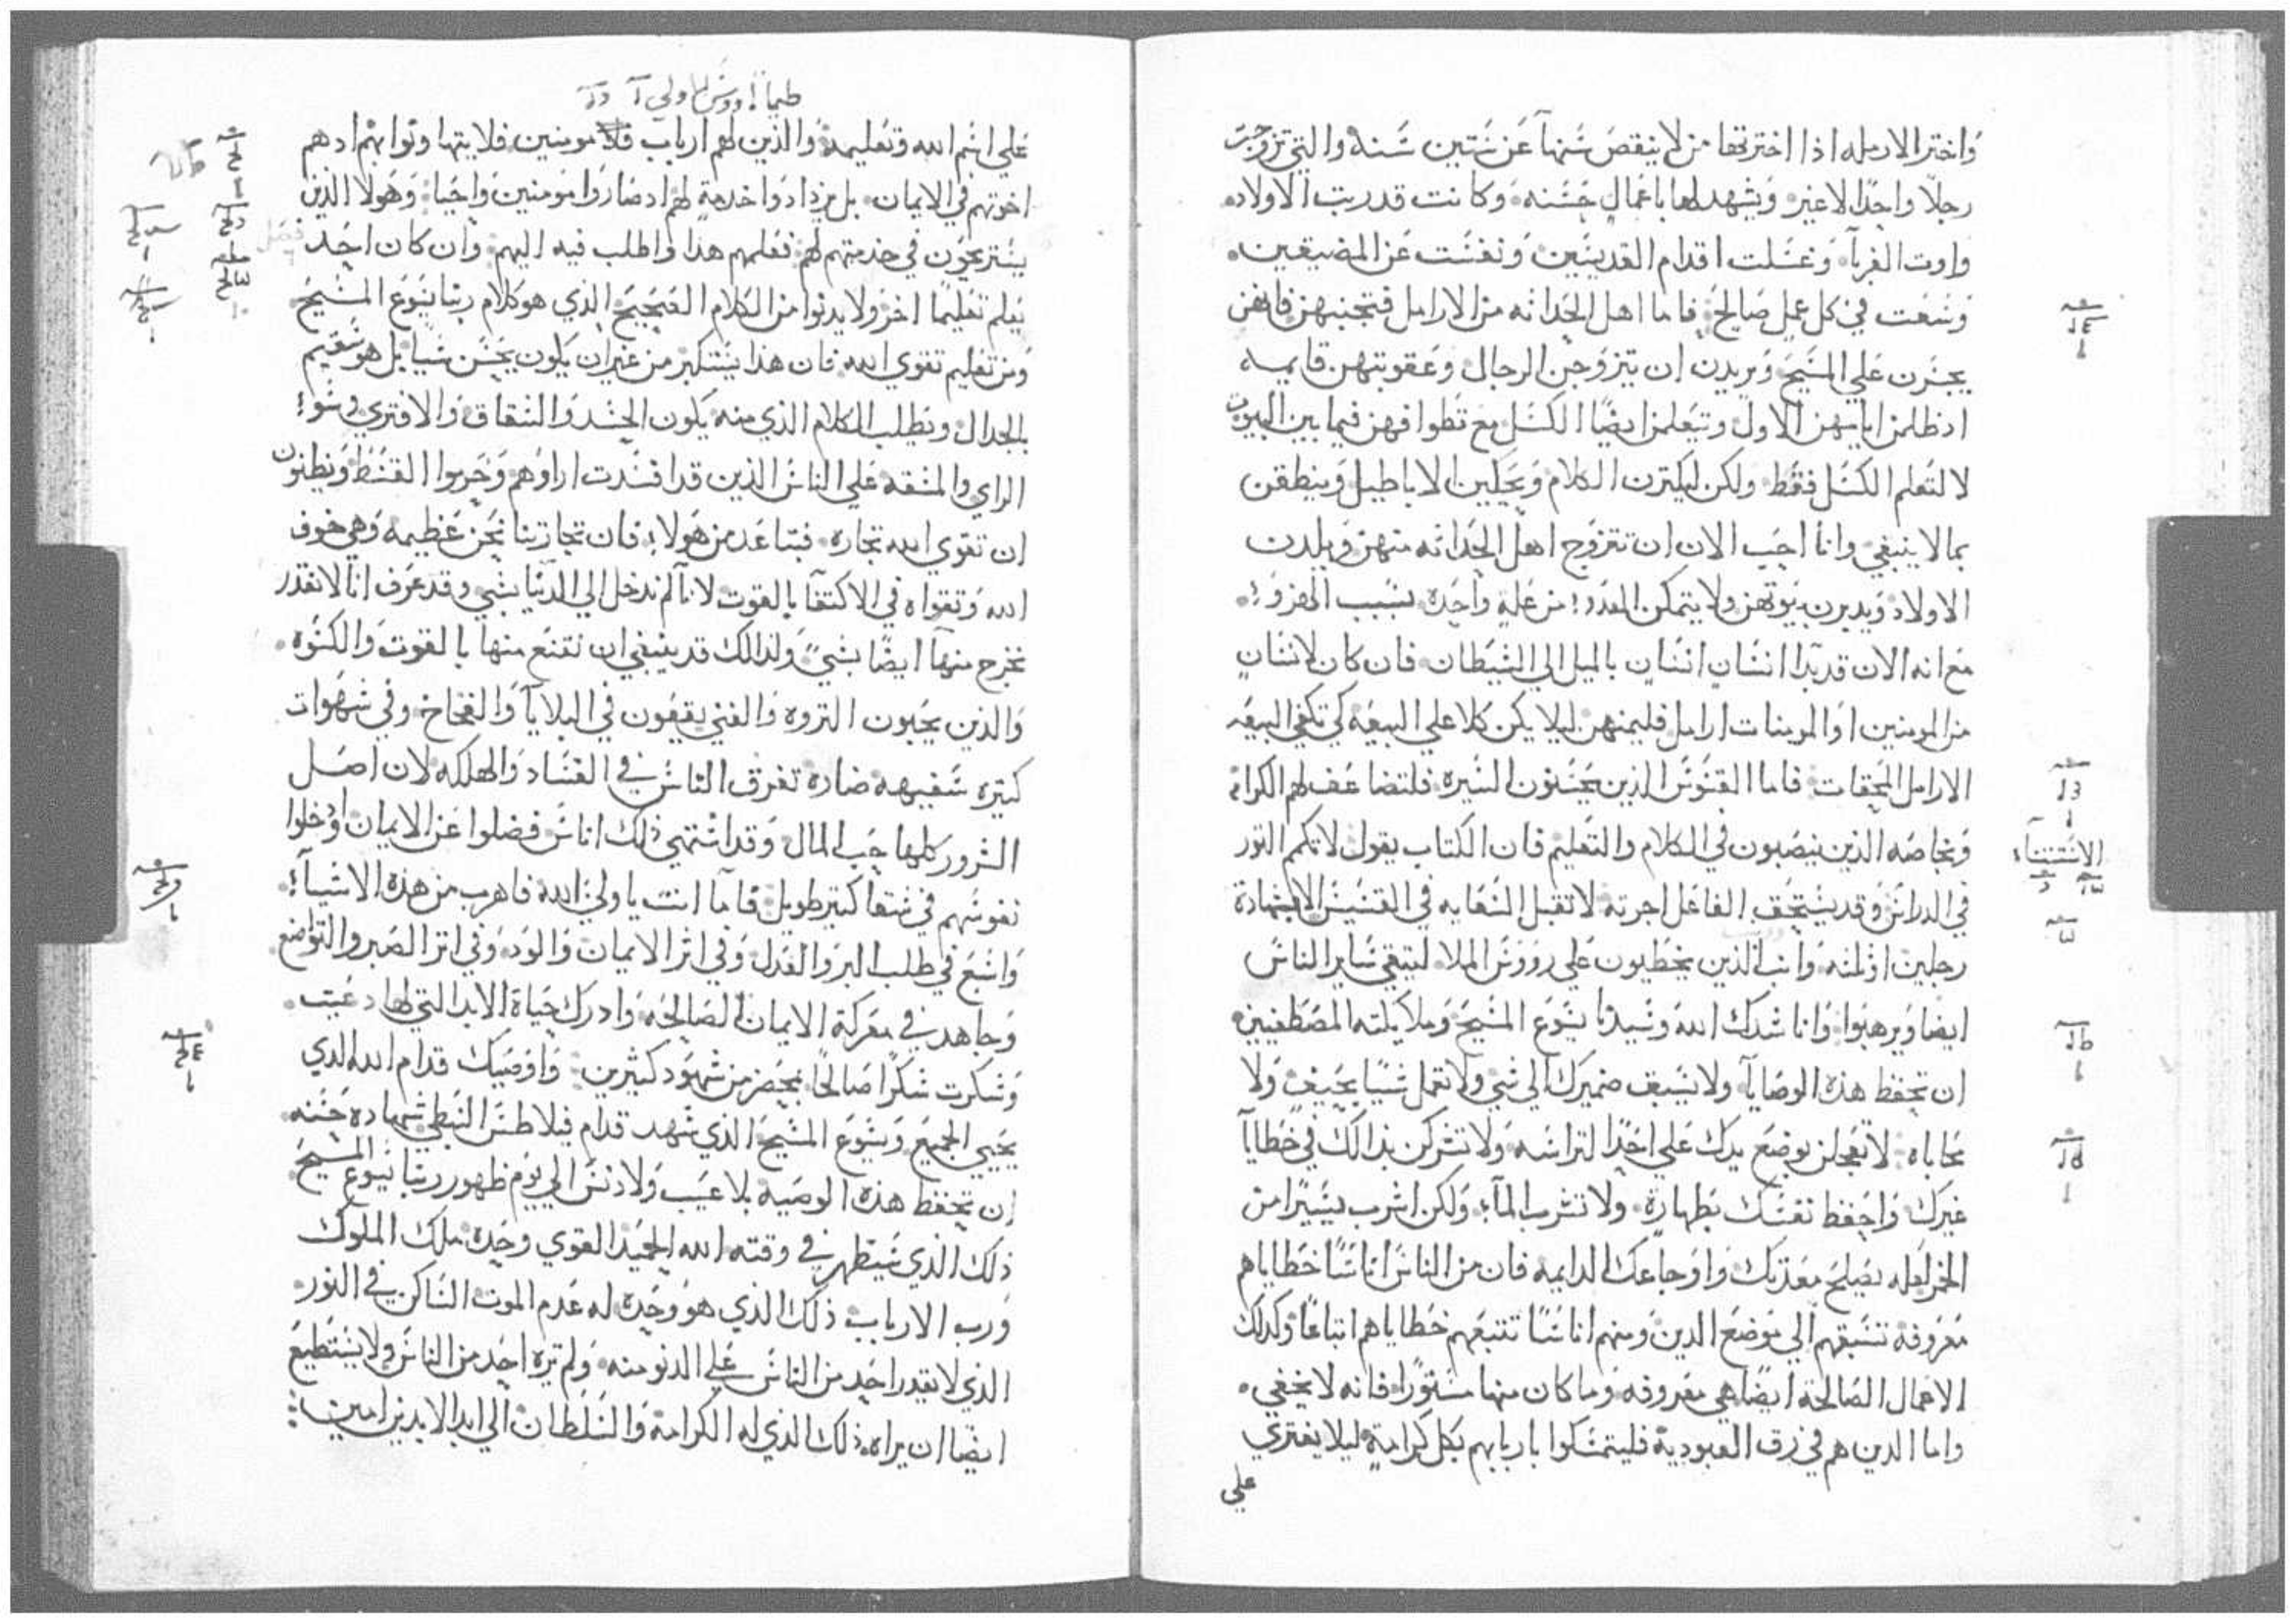 واختر الارمله اذا اخترتها من لا ينقص سنها عن ستين سنه والتي تزوجت
رجلا واحدا لا غير ويشهد لها باعمال حسنه وكانت قد ربت الاولاد
واوت الغربآ وغسلت اقدام القديسين ونفست عن المضيقين
وسعت في كل عمل صالح فاما اهل الحداثه من الارامل فتجنبهن فانهن
يجسرن علي المسيح ويريدن ان يتزوجن الرجال وعقوبتهن قايمه
اذ ظلمن ايمانهن الاول ويتعلمن ايضا الكسل مع تطوافهن فيما بين البيوت
لا لتعلم الكسل فقط ولكن ليكترن الكلام ويجلبن الاباطيل وينطقن
بما لا ينبغي وانا احب الان ان تتزوج اهل الحداثه منهن ويلدن
الاولاد ويدبرن بيوتهن ولا يتمكن العدو من عله واحده بسبب الهزو
مع انه الان قد بدا انسان انسان بالميل الي الشيطان فان كان لانسان
من المومنين او المومنات ارامل فليمنهن ليلا يكن كلا علي البيعه كي تكفي البيعه
الارامل المحقات فاما القسوس الذين يحسنون السيره فلتضاعف لهم الكرامه
وبخاصه الذين ينصبون في الكلام والتعليم فان الكتاب يقول لا تكم التور
في الدراس وقد يستحق الفاعل اجرته لا تقبل السعايه في القسيس الا بشهادة
رجلين او تلته وانب الذين يخطيون علي رووس الملا ليتقي ساير الناس
ايضا ويرهبوا وانا شدك الله وسيدنا يسوع المسيح وملايكته المصطفيين
ان تحفظ هذه الوصايآ ولا يسبق ضميرك الي شي ولا تعمل شيا بحيف ولا
محاباه لا تعجلن بوضع يدك علي احد التراسه ولا تشركن بذالك في خطايآ
غيرك واحفظ نفسك بطهاره ولا تشرب المآ ولكن اشرب يسيرا من
الخمر لعله يصلح معدتك واوجاعك الدايمه فان من الناس اناسا خطاياهم
معروفه تسبقهم الي موضع الدين ومنهم اناسا تتبعهم خطاياهم اتباعا وكذلك
الاعمال الصالحة ايضا هي معروفه وما كان منها مستورا فانه لا يخفي
واما الذين هم في رق العبودية فليتمسكوا باربابهم بكل كرامة ليلا يفتري
علي
الاستتناء
طيماتاووس الاولي
علي اسم الله وتعليمه والذين لهم ارباب مومنين فلا يتهاونوا بهم اذ هم
اخوتهم في الايمان بل يزدادوا خدمة لهم اذ صاروا مومنين واحبا وهولا الذين
يستريحون في خدمتهم لهم فعلمهم هذا واطلب فيه اليهم وان كان احد
يعلم تعليما اخر ولا يدنوا من الكلام الصحيح الذي هو كلام ربنا يسوع المسيح
ومن تعليم تقوي الله فان هذا يستكبر من غير ان يكون يحسن شيا بل هو سقيم
بالجدال وبطلب الكلام الذي منه يكون الحسد والشقاق والافتري وسو
الراي والمشقه علي الناس الذين قد افسدت اراوهم وحربوا القسط ويظنون
ان تقوي الله تجاره فتباعد من هولا فان تجارتنا نحن عظيمه وهي خوف
الله وتقواه في الاكتفا بالقوت لانآ لم ندخل الي الدنيا بشي وقد عرف انا لا نقدر
نخرج منهآ ايضا بشي ولذالك قد ينبغي ان نقتنع منها بالقوت والكسوه
والذين يحبون التروه والغني يقعون في البلايآ والفخاخ وفي شهوات
كتيره سفيهه ضاره تغرق الناس في الفساد والهلكه لان اصل
الشرور كلها حب المال وقد اشتهي ذلك اناس فضلوا عن الايمان وادخلوا
نفوسهم في شقا كتير طويل فاما انت يا ولي الله فاهرب من هذه الاشيآ
واتبع في طلب البر والعدل وفي اثر الايمان والود وفي اتر الصبر والتواضع
وجاهد في معركة الايمان الصالحه وادرك حياة الابد التي لها دعيت
وشكرت شكرا صالحا بمحضر من شهود كثيرين واوصيك قدام الله الذي
يحيي الجميع ويسوع المسيح الذي شهد قدام فيلاطس النبطي شهاده حسنه
ان تحفظ هذه الوصيه بلا عيب ولا دنس الي يوم ظهور ربنا يسوع المسيح
ذلك الذي سيظهر في وقته الله الحميد القوي وحده ملك الملوك
ورب الارباب ذلك الذي هو وحده له عدم الموت الساكن في النور
الذي لا يقدر احد من الناس علي الدنو منه ولم يره احد من الناس ولا يستطيع
ايضا ان يراه ذلك الذي له الكرامة والسلطان الي ابد الابدين امين
فصل